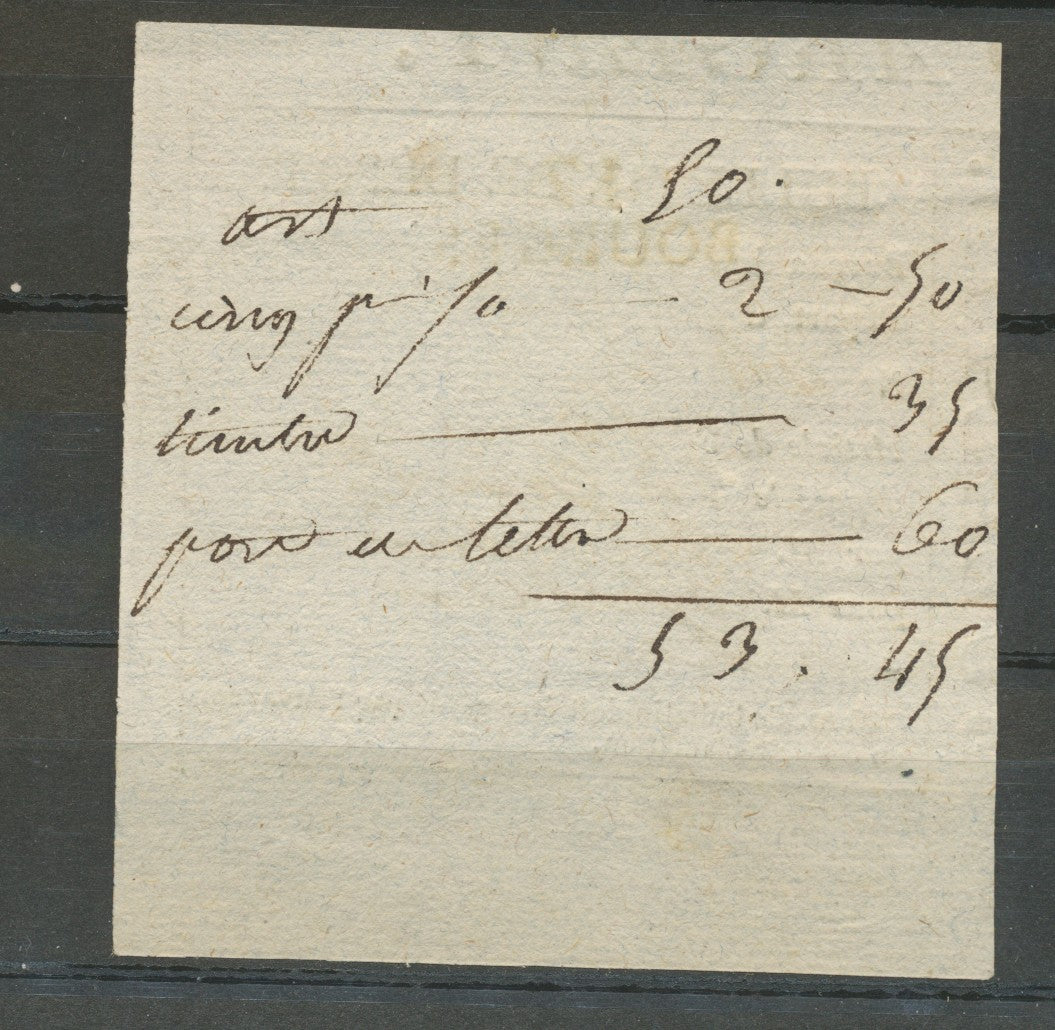 art 50.
cinq pr % — 2 — 50
timbre — 35
port de lettre — 60
53. 45